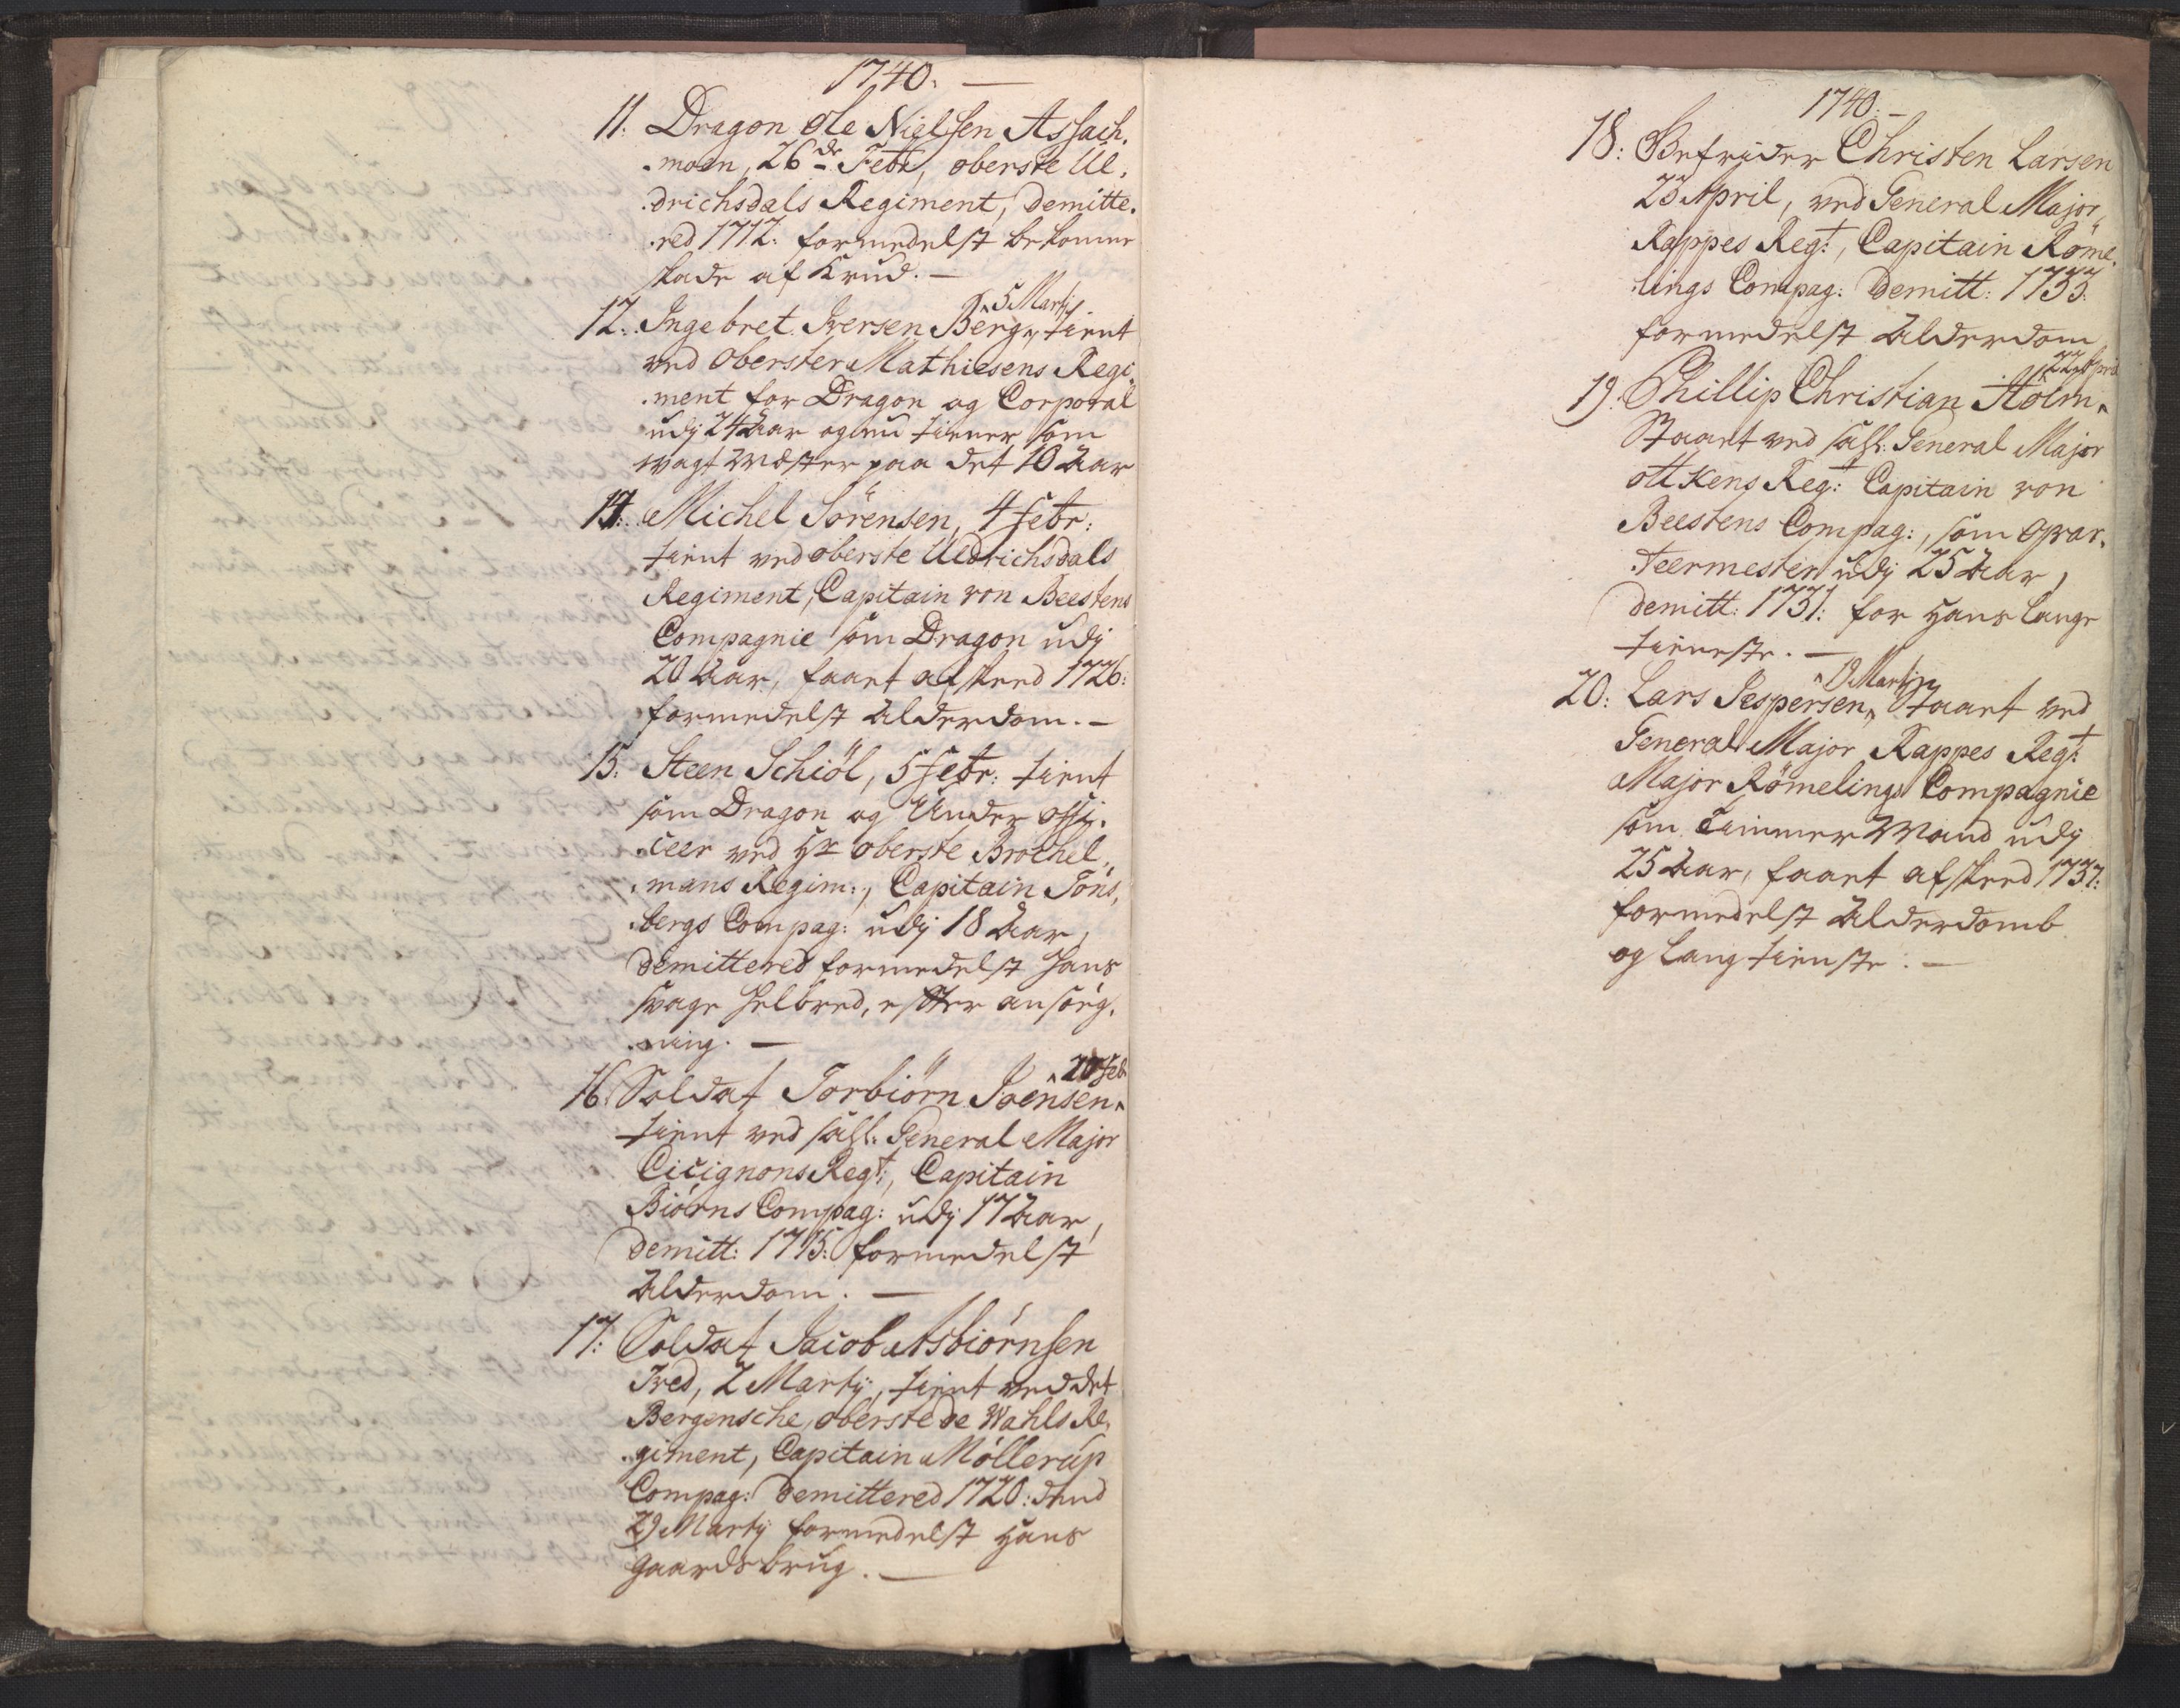 1740. —
11. Dragon Ole Nielsen Assach,
.moen, 26de Febr, oberste Ul,
.drichsdals Regiment, demitte,
.red 1712: formedelst bekomne
skade af Krud. —
5 Martj
12. Ingebret Iversen Berg, tient
ved Oberster Mathiesens Regi
.ment for Dragon og Corporal
udj 24 Aar og nu tiener som
vagt Mæster paa det 10 Aar
14. Michel Sörensen, 4 febr:
tient ved oberste Uldrichsdals
Regiment, Capitain von Beestens
Compagnie som Dragon udj
20 Aar, faaet afskeed 1726:
formedelst Alderdom. —
15. Steen Schiöl, 5 febr: tient
som Dragon og Under offi,
.ceer ved Hr oberste Brochel,
.mans Regim:, Capitain Töns,
.bergs Compag: udj 18 Aar,
demittered formedelst hans
svage helbred, efter ansög,
.ning. —
20 feb
16. Soldat Torbiörn Joensen
tient ved sahl: General Major
Cicignons Regt:, Capitain
Biörns Compag: udj 17 Aar,
demitt: 1715: formedelst
Alderdom. —
17: Soldat Jacob Asbiörnsen
Tved, 2 Martij, tient ved det
Bergensche, oberste de Wahls Re,
.giment, Capitain Möllerup
Compag: demittered 1720: dend
29 Martij formedelst hans
gaards brug. —
1740. —
18: Befrider Christen Larsen
23 April, ved General Major
Rappes Regt:, Capitain Röme,
.lings Compag: demitt: 1733:
formedelst Alderdom
22 April
19. Phillip Christian Holm
Staaet ved sahl: General Major
Ottkens Regt: Capitain von
Beestens Compag:, som Qvar,
.teermester udj 25 Aar,
demitt: 1731: for hans lange
tieneste. —
19 Martij
20: Lars Jespersen, Staaet ved
General Major Rappes Regt:
Major Römelings Compagnie
som Timmer Mand udj
25 Aar, faaet afskeed 1737:
formedelst Alderdomb
og lang tienste. —